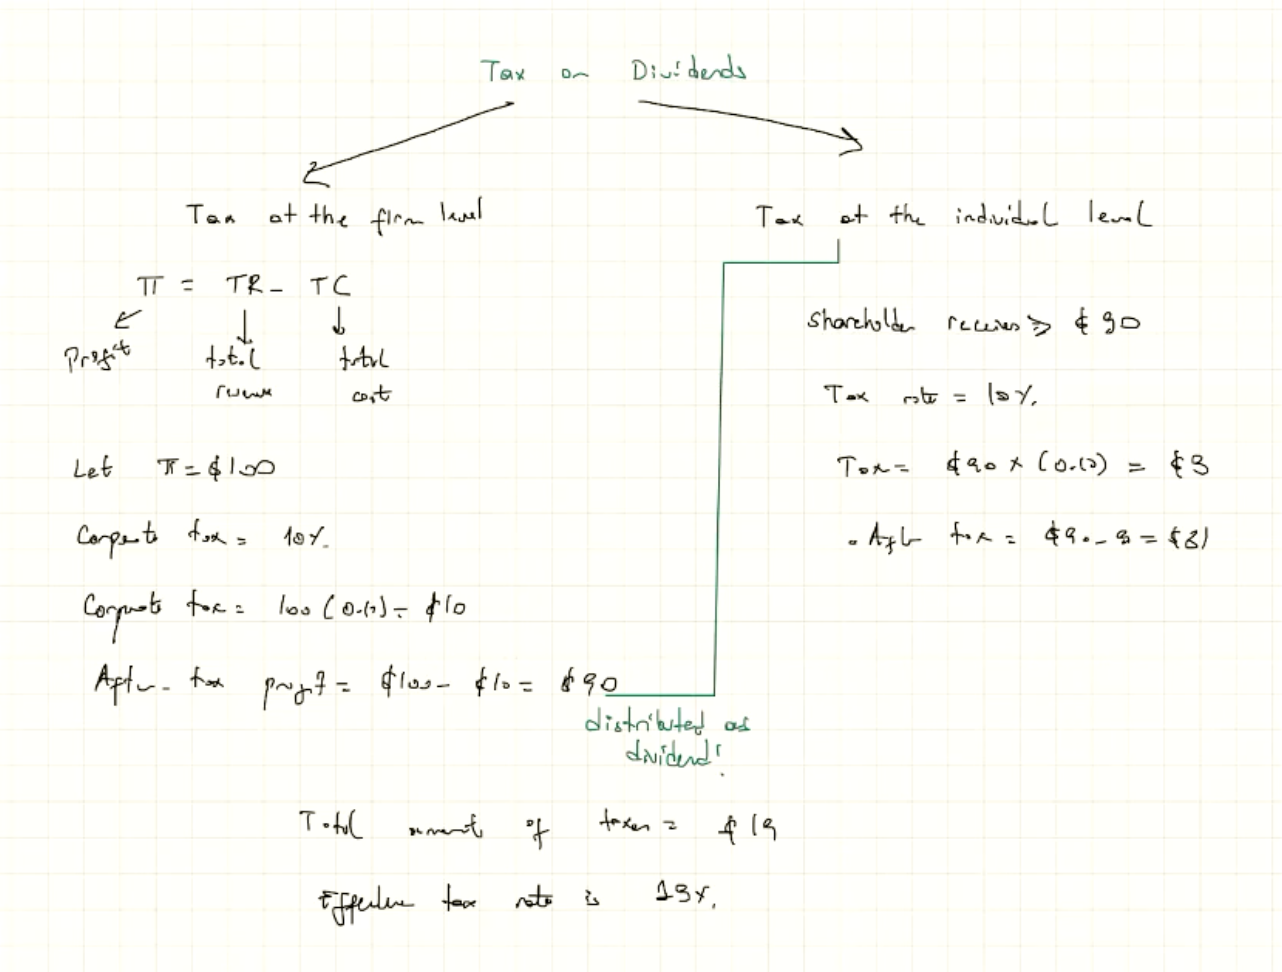 Tax on Dividends
Tax at the firm level
π = TR - TC
Profit
total revenue
total cost
Let π = $100
Corporate tax = 10%.
Corporate tax = 100 (0.10) = $10
After-tax profit = $100 - $10 = $90
distributed as
dividend!
Tax at the individual level
Shareholder receives => $90
Tax rate = 10%.
Tax = $90 x (0.10) = $9
. After tax = $90 - 9 = $81
Total amount of taxes = $19
Effective tax rate is 19%.